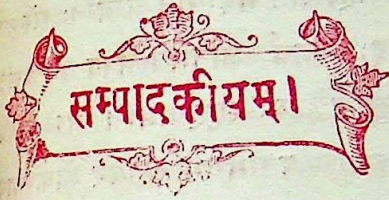 सम्पादकीयम्।